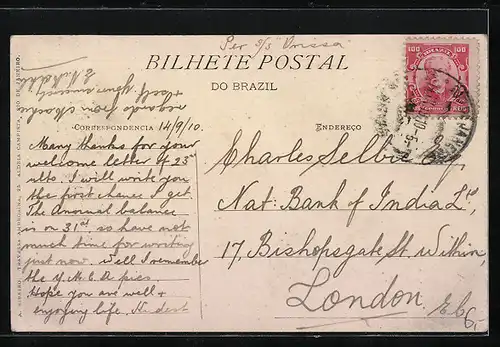 Per S/S "Orissa"
BILHETE POSTAL
DO BRAZIL
CORRESPONDENCIA 14/9/10.
ENDEREÇO
Many thanks for your
welcome letter of 23rd
ulto. I will write you
the first chance I get.
The annual balance
is on 31st so have not
much time for writing
just now. Well I remember
the Y.M.C.A pics.
Hope you are well +
enjoying life. Kindest
regards from
+ self yours sincerely
Charles Selbie
Nat: Bank of India Ld
17, Bishopsgate St Within,
London,
E.C.
6,-
100
100
A. RIBEIRO.
RIO DE JANEIRO.